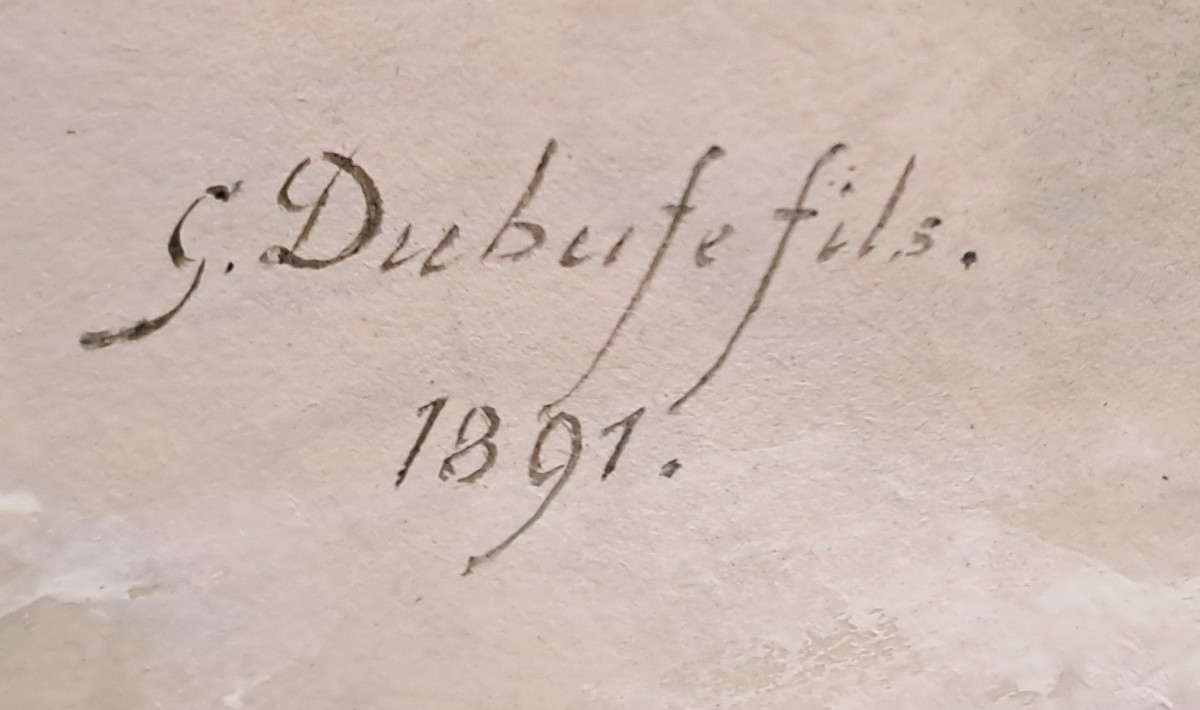 G. Dubufe fils.
1891.